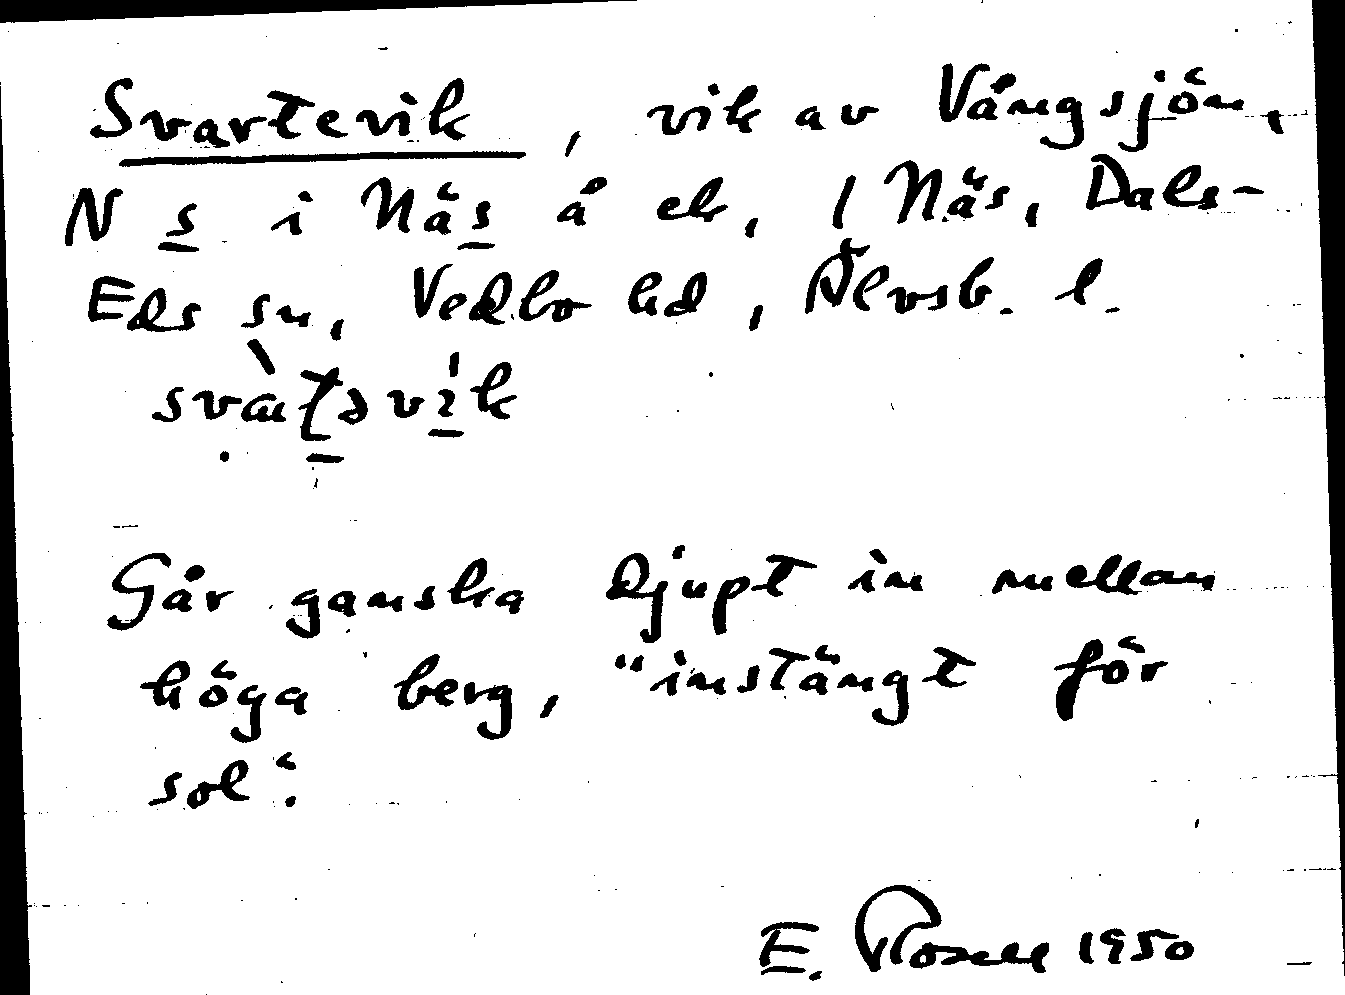 Svartevik, vik av Vångsjön,
N s i Näs å ek, 1 Näs, Dals-
Eds sn, Vedbo hd, Älvsb. l.
Går ganska djupt in mellan
höga berg, "instängt för
sol".
E. Rosell 1950